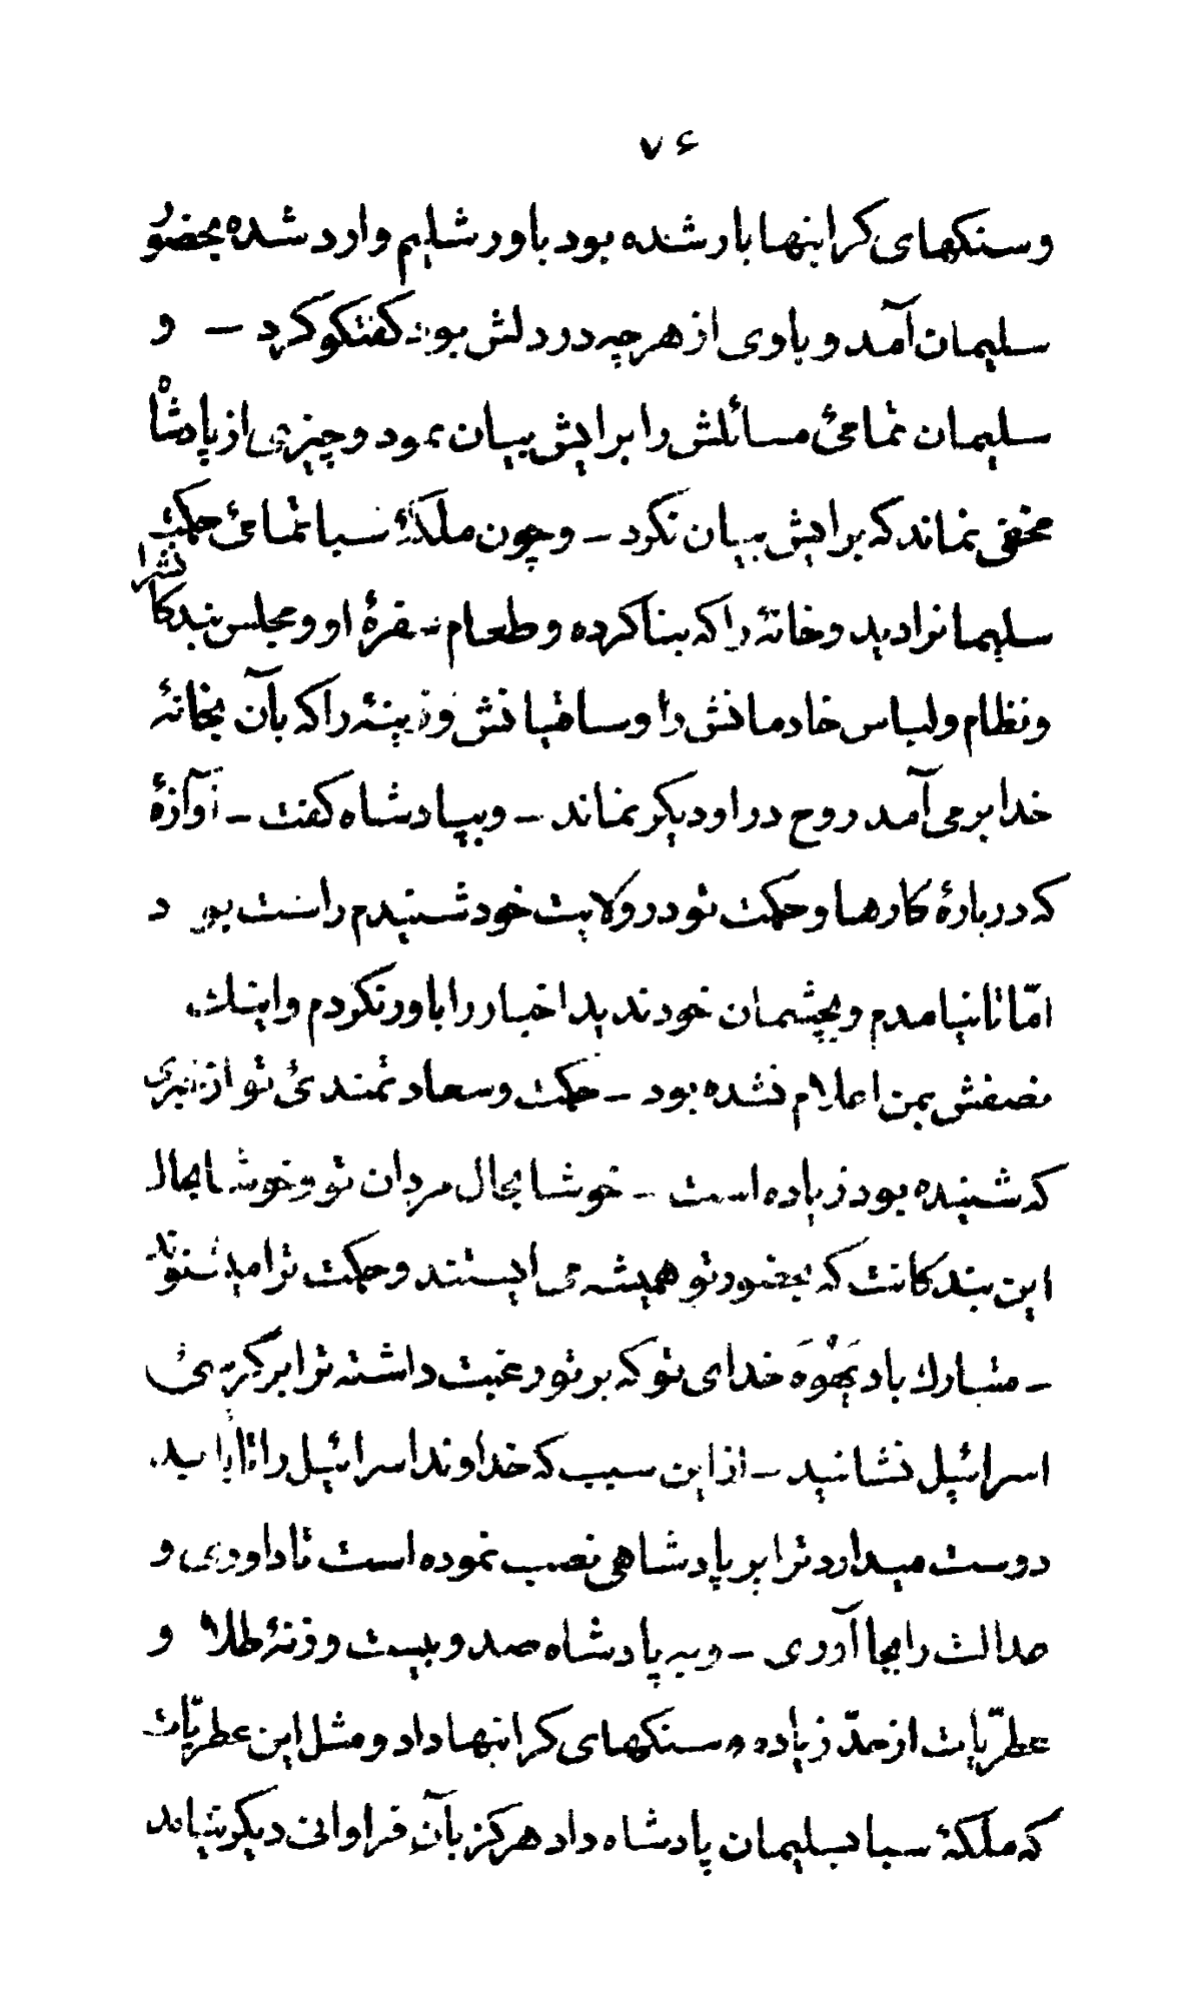 ۷۶
وسنکهای کرانبها بار شده بود باورشلیم وارد شده بحضور
سلیمان آمد و با وی از هر چه در دلش بود کفتکو کرد – و
سلیمان تمامئ مسائلش را برایش بیان نمود و چیزی از پادشاه
مخفی نماند که برایش بیان نکرد – و چون ملکهٔ سبا تمامئ حکمت
سلیمانرا دید و خانهٔ را که بنا کرده و طعام سفرهٔ او و مجلس بندکانشرا
و نظام و لباس خادمانش را و ساقیانش و زینهٔ را که بآن بخانهٔ
خدا برمی‌آمد روح در او دیکر نماند – و بپادشاه کفت – آوازهٔ
که دربارهٔ کارها و حکمت تو در ولایت خود شنیدم راست بود
امّا تا نیامدم و بچشمان خود ندیدم اخبار را باور نکردم و اینك
نصفش بمن اعلام نشده بود – حکمت و سعادتمندئ تو از خبری
که شنیده بود زیاده است – خوشا بحال مردان تو و خوشا بحال
این بندکانت که بحضور تو همیشه می ایستند و حکمت ترا میشنوند
– متبارك باد یَهْوَه خدای تو که بر تو رغبت داشته ترا بر کرسئ
اسرائیل نشانید – از این سبب که خداوند اسرائیل را تا بابد
دوست میدارد ترا بر پادشاهی نصب نموده است تا داوری و
عدالت را بجا آوری – و به پادشاه صد و بیست وزنهٔ طلا و
عطریّات از حدّ زیاده و سنکهای کرانبها داد و مثل این عطریّات
که ملکهٔ سبا بسلیمان پادشاه داد هرکز بآن فراوانی دیکر نیامد